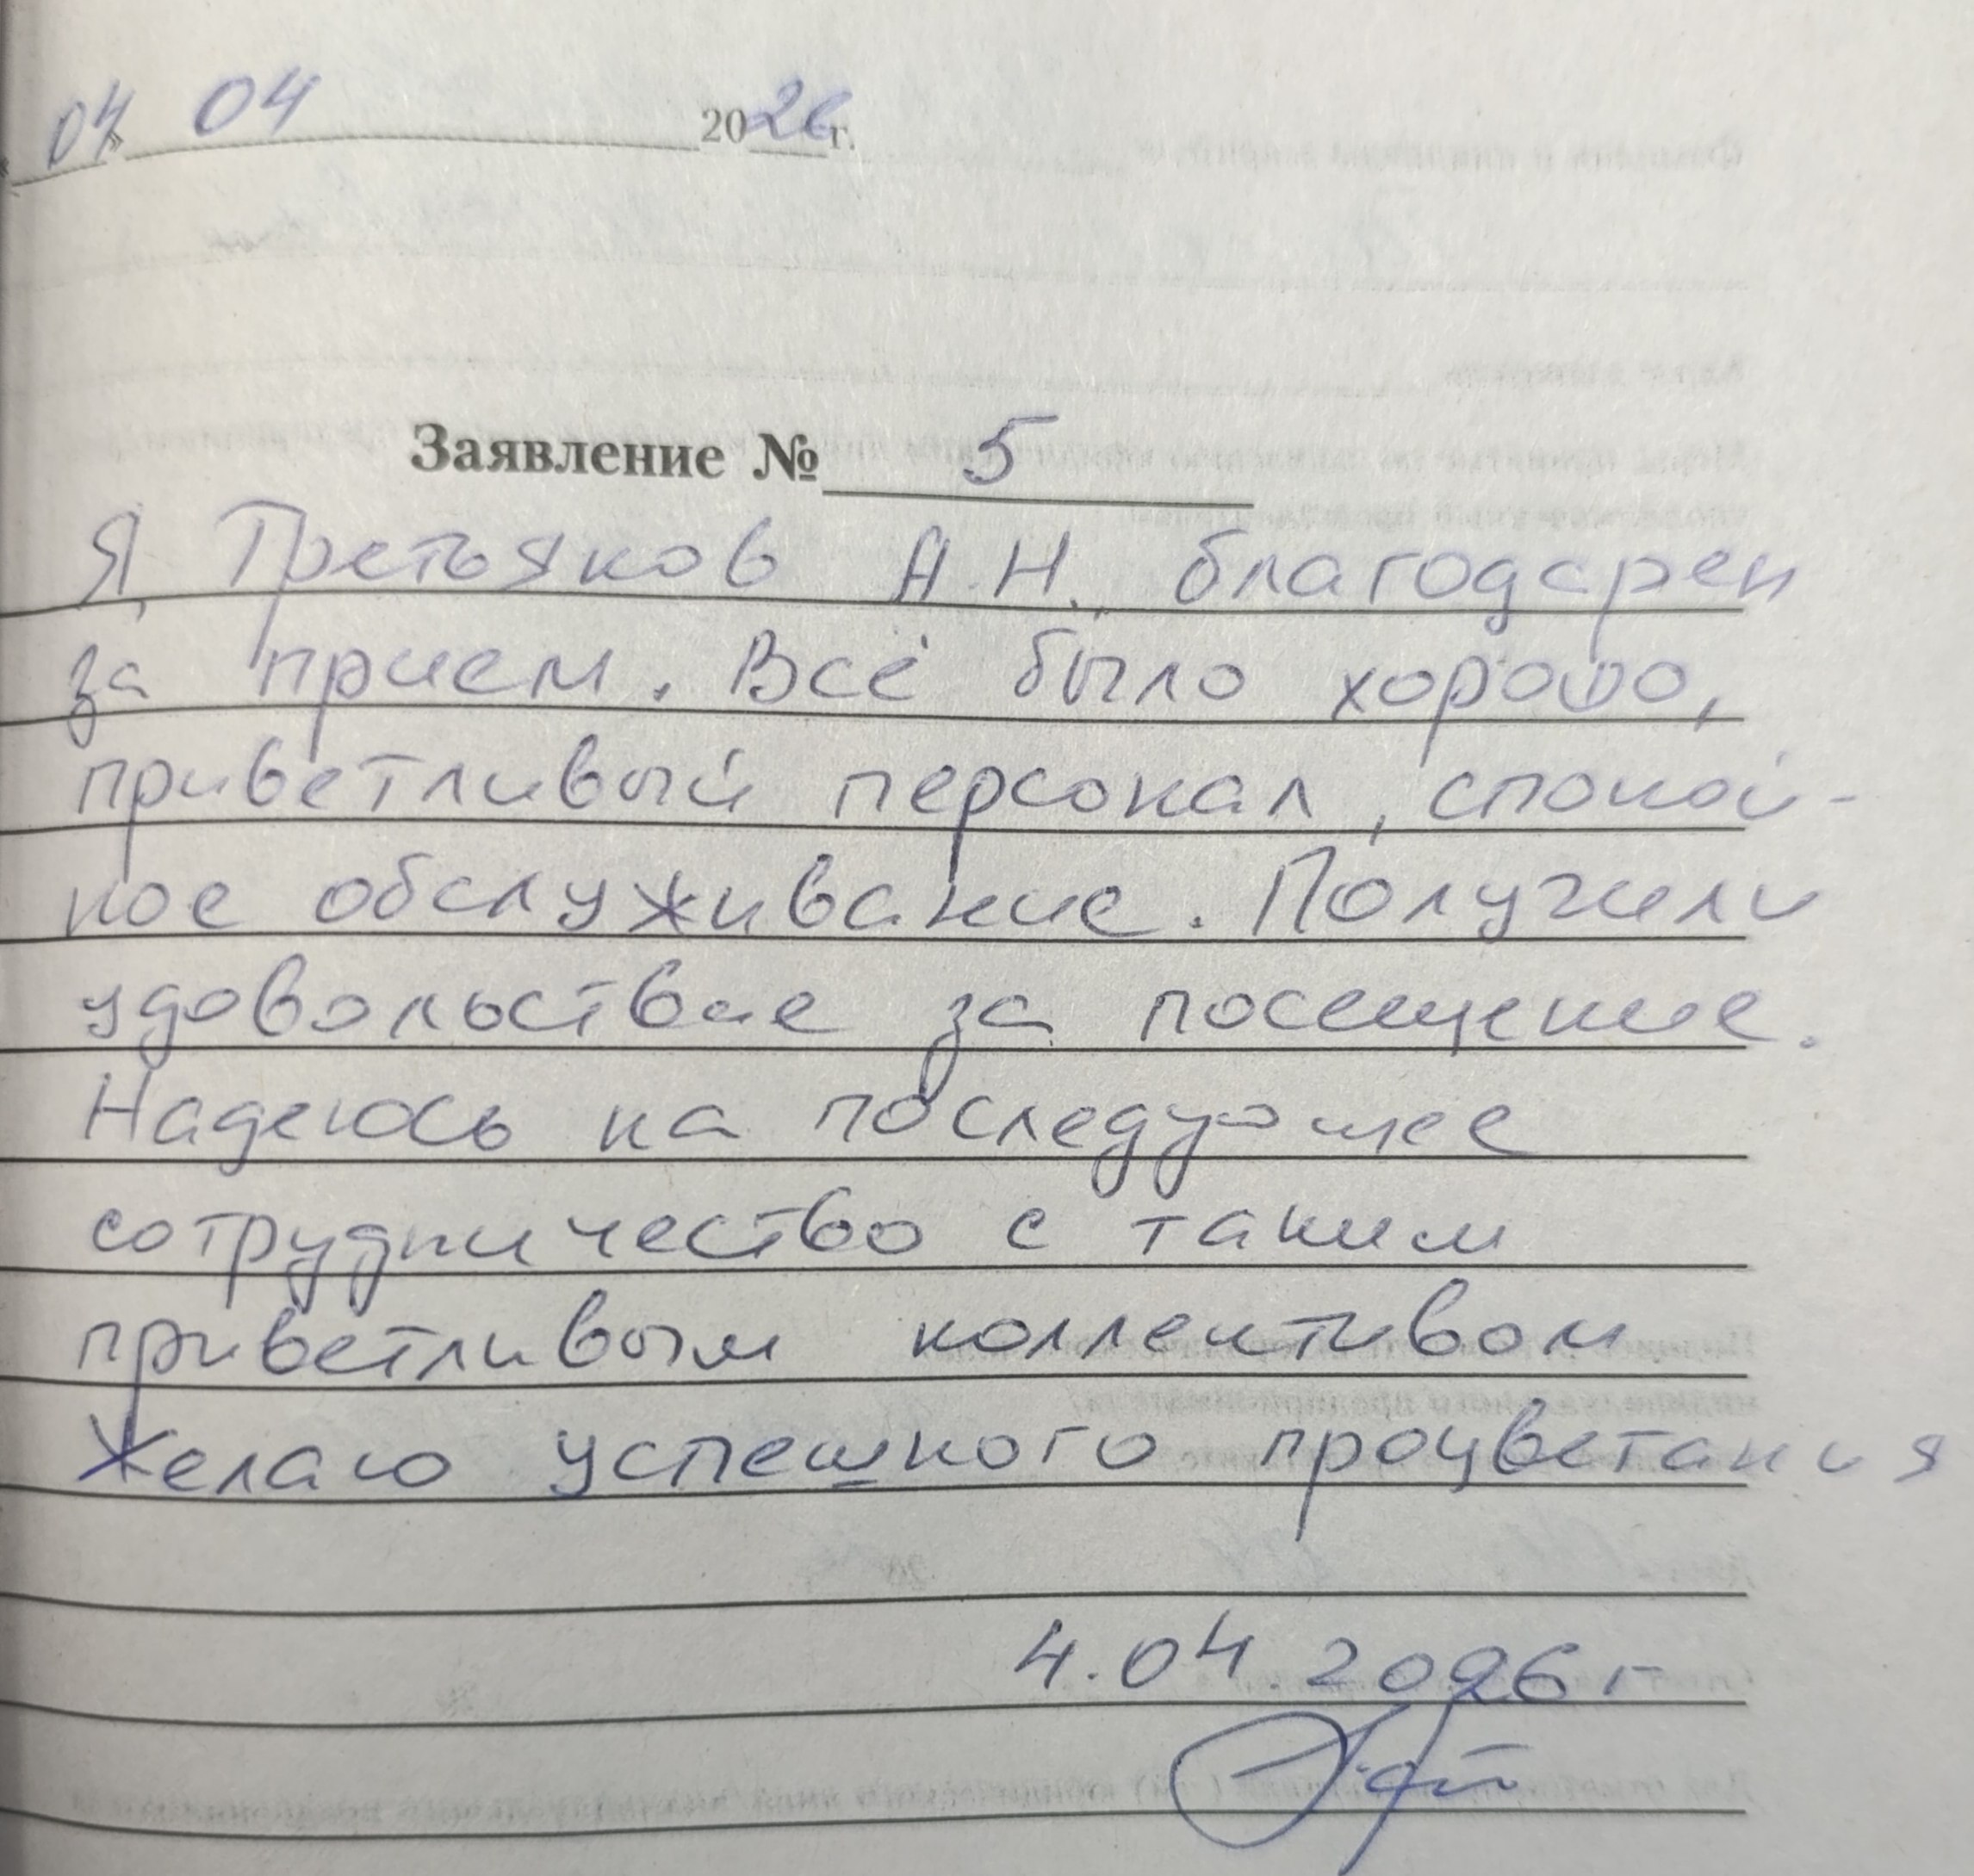 « 04 » 04 2026 г.
Заявление № 5
Я, Третьяков А.Н., благодарен
за прием. Всё было хорошо,
приветливый персонал, спокой-
ное обслуживание. Получили
удовольствие за посещение.
Надеюсь на последующее
сотрудничество с таким
приветливым коллективом
Желаю успешного процветания
4.04 2026 г